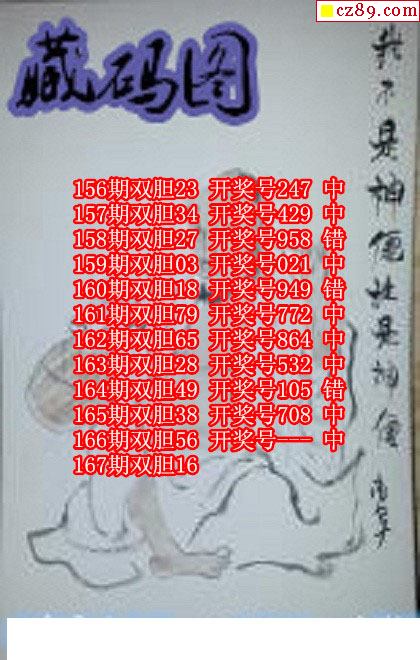 cz89.com
藏码图
我不是神
但找是神
156期双胆23 开奖号247 中
157期双胆34 开奖号429 中
158期双胆27 开奖号958 错
159期双胆03 开奖号021 中
160期双胆18 开奖号949 错
161期双胆79 开奖号772 中
162期双胆65 开奖号864 中
163期双胆28 开奖号532 中
164期双胆49 开奖号105 错
165期双胆38 开奖号708 中
166期双胆56 开奖号--- 中
167期双胆16